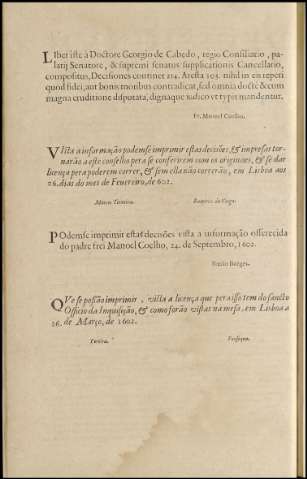 Liber iste à Doctore Georgio de Cabedo, regio Consiliario, pa-
latij Senatore, & supremi senatus supplicationis Cancellario,
compositus, Decisiones continet 214. Aresta 103. nihil in eis reperi
quod fidei, aut bonis moribus contradicat, sed omnia docte & cum
magna eruditione disputata, dignaque iudico vt typis mandentur.
Fr. Manoel Coelho.
VIsta a informação podemse imprimir estas decisões, & impressas tor-
narão a este conselho pera se conferirem com os originaes, & se dar
licença pera poderem correr, & sem ella não correrão, em Lisboa aos
26. dias do mes de Feuereiro, de 602.
Marcos Teixeira.
POdemse imprimir estas decisões vista a informação offerecida
do padre frei Manoel Coelho, 24. de Septembro, 1602.
Borges.
QVe se possão imprimir, vista a licença que pera isso tem do sancto
Officio da Inquisição, & como forão vistas na mesa, em Lisboa a
26. de Março, de 1602.